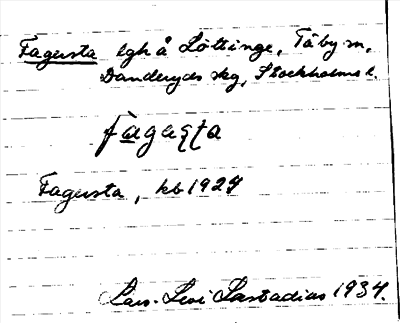 Fagersta lgh å Löttinge, Täby sn,
Danderyds skg, Stockholms l.
fagaʂʈa
Fagersta, kb 1927
Lars-Levi Læstadius 1934.